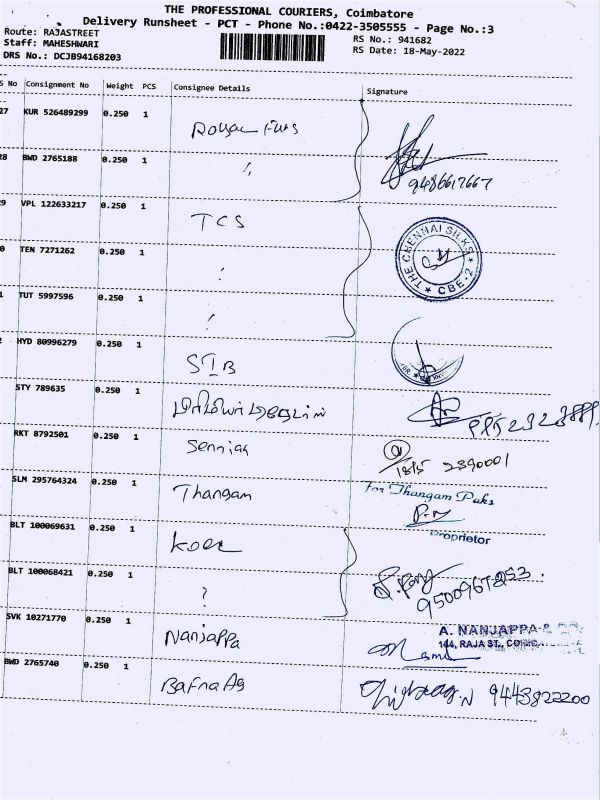 THE PROFESSIONAL COURIERS, Coimbatore
Delivery Runsheet - PCT - Phone No.:0422-3505555 - Page No.:3
Route: RAJASTREET
Staff: MAHESHWARI
DRS No.: DCJB94168203
RS No.: 941682
RS Date: 18-May-2022
S No Consignment No Weight PCS Consignee Details Signature
27 KUR 526489299 0.250 1
28 BWD 2765188 0.250 1 "
9486617667
29 VPL 122633217 0.250 1 TCS
THE CHENNAI SILKS
CBE-2
0 TEN 7271262 0.250 1 "
1 TUT 5997596 0.250 1 "
2 HYD 80996279 0.250 1 STB
STY 789635 0.250 1
RKT 8792501 0.250 1 Senniag
2390001
SLM 295764324 0.250 1 Thangam
For Thangam Paks
Proprietor
BLT 100069631 0.250 1
BLT 100068421 0.250 1
SVK 10271770 0.250 1 Nanjappa
A. NANJAPPA
144, RAJA ST.,
BWD 2765740 0.250 1 Bafna Ag
9443822200